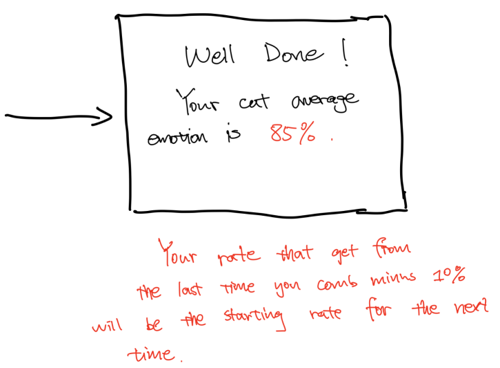 Well Done !
Your cat average
emotion is 85% .
Your rate that get from
the last time you comb minus 10%
will be the starting rate for the next
time.